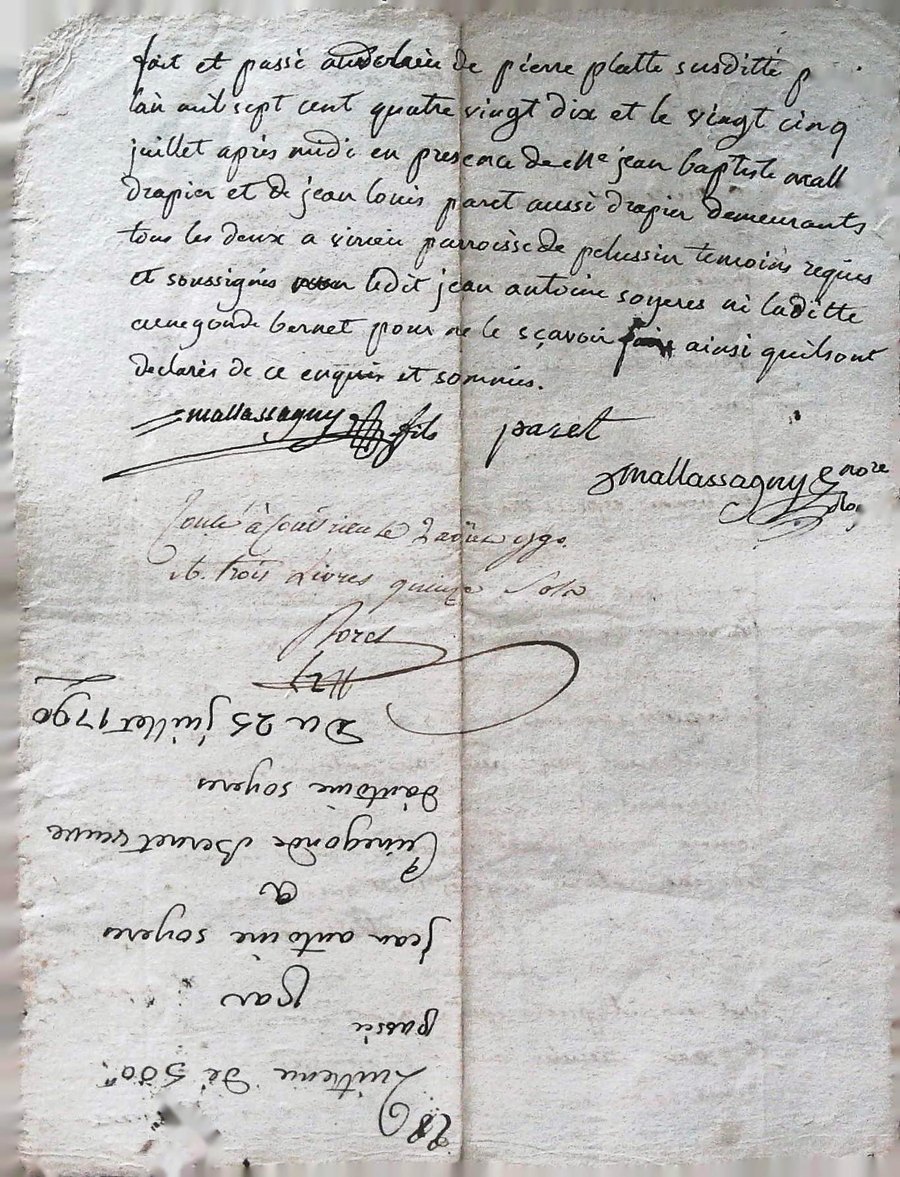 fait et passé au de pierre platte susditté p
lan mil sept cent quatre vingt dix et le vingt cinq
juillet après midi en presence de Me jean baptiste mall
drapier et de jean louis paret aussi drapier demeurants
tous les deux a virieu parroisse de pelussin temoins reqüis
et soussignés non ledit jean antoine soyeres ni laditte
cunegonde bernet pour ne le sçavoir faire ainsi quils ont
declarés de ce enquis et sommés.
mallassagny fils paret
mallassagny nore
le 2 aout 1790.
trois Livres quinze Sols
28
Quittance de 500ll
passée
par
jean antoine soyeres
a
Cunegonde Bernet veuve
dantoine soyeres
Du 25 juillet 1790